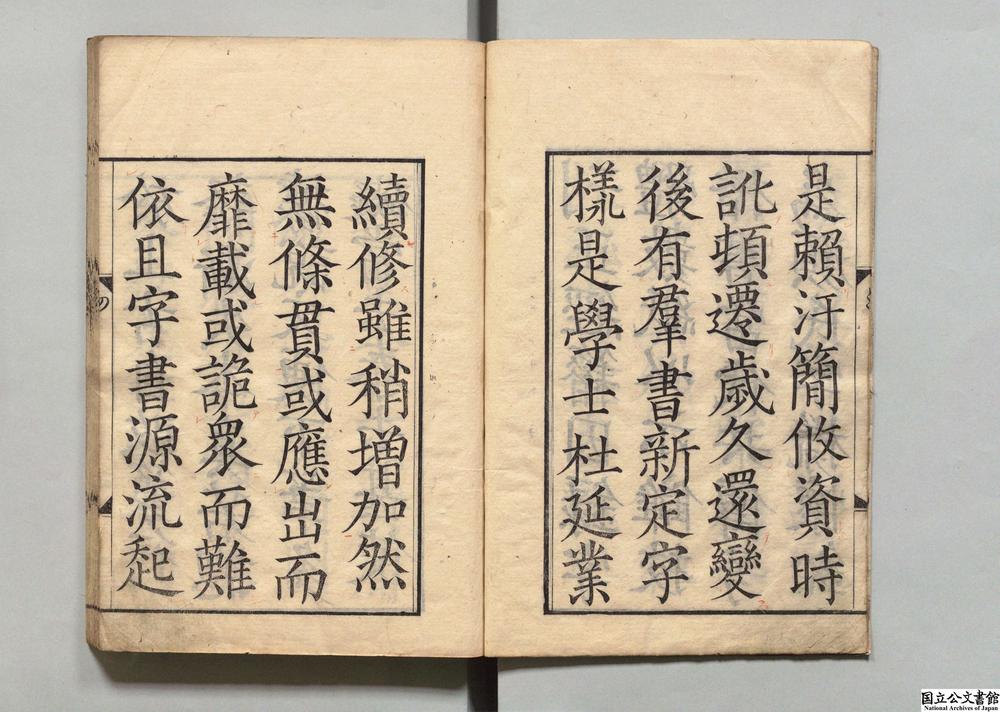 是賴汗簡攸資時
訛頓遷歲久還變
後有羣書新定字
樣是學士杜延業
續修雖稍增加然
無條貫或應出而
靡載或詭衆而難
依且字書源流起
国立公文書館
National Archives of Japan